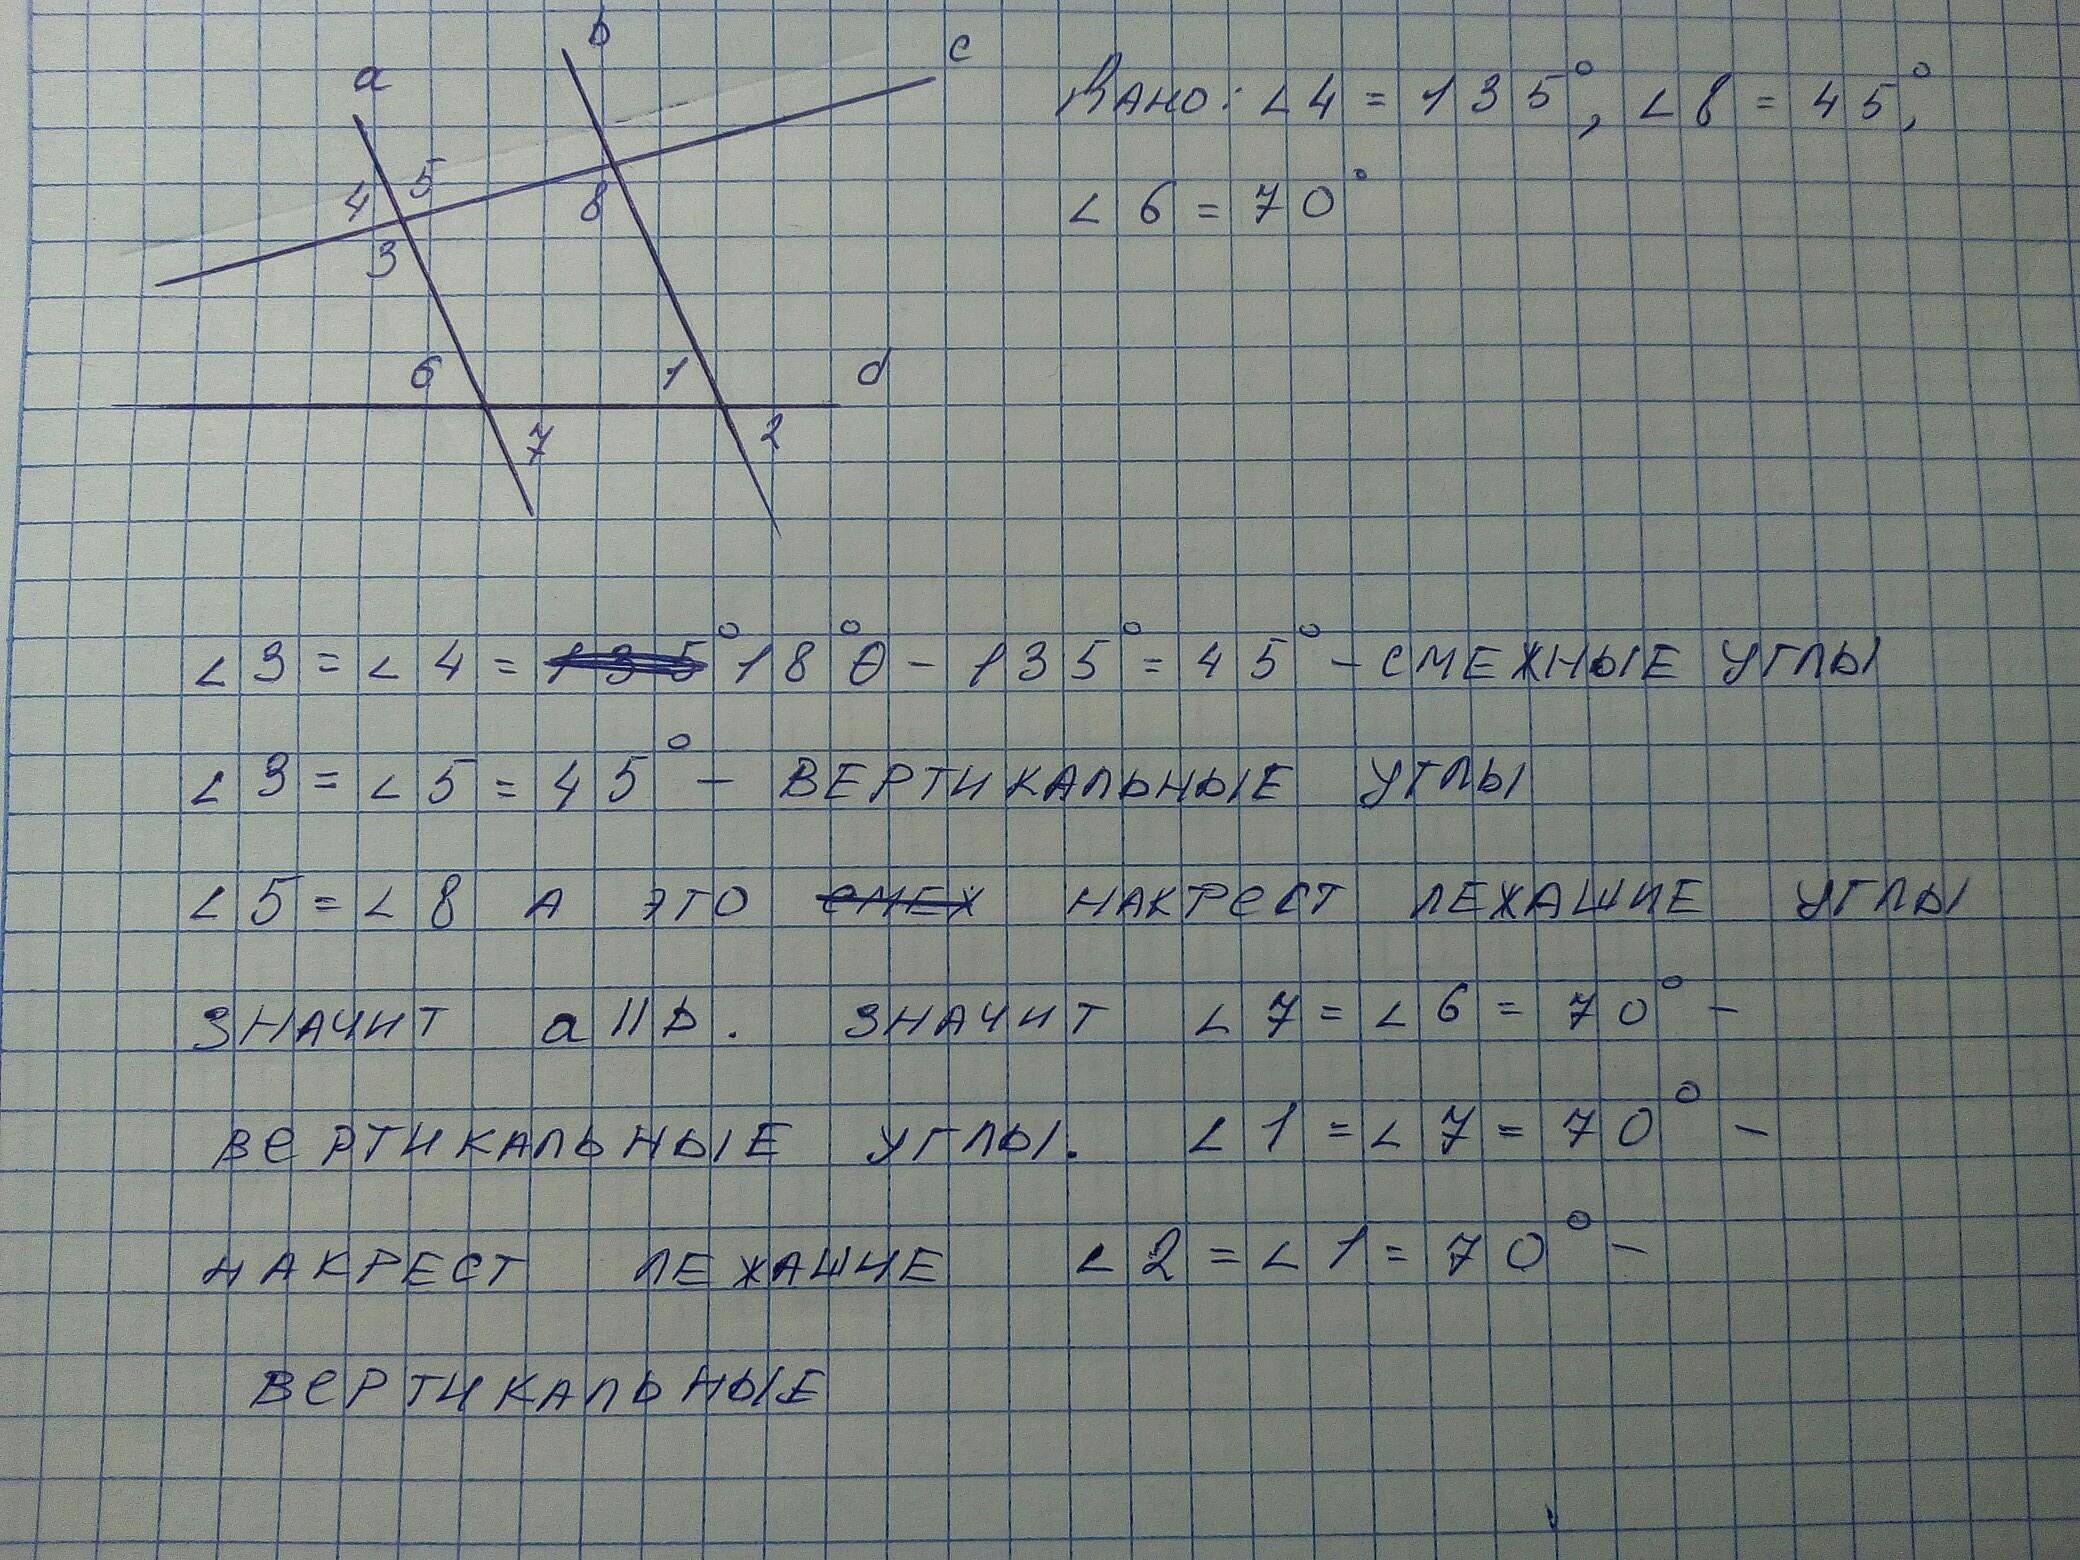 a
b
c
Дано: ∠4 = 135°, ∠8 = 45°,
4
5
8
∠6 = 70°
3
6
1
d
7
2
∠3 = ∠4 = 180° - 135° = 45° - СМЕЖНЫЕ УГЛЫ
∠3 = ∠5 = 45° - ВЕРТИКАЛЬНЫЕ УГЛЫ
∠5 = ∠8 А ЭТО СМЕЖ НАКРЕСТ ЛЕЖАШИЕ УГЛЫ
ЗНАЧИТ a || b. ЗНАЧИТ ∠7 = ∠6 = 70° -
ВЕРТИКАЛЬНЫЕ УГЛЫ. ∠1 = ∠7 = 70° -
НАКРЕСТ ЛЕЖАШИЕ ∠2 = ∠1 = 70° -
ВЕРТИКАЛЬНЫЕ